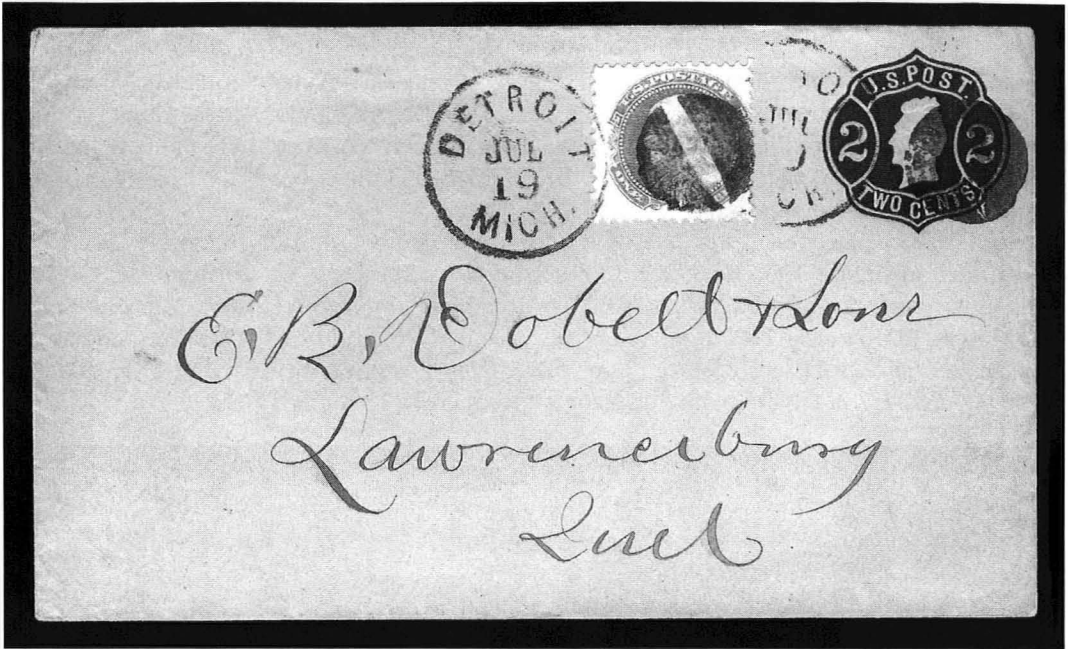 DETROIT
JUL
19
MICH.
JUL
CH.
U.S. POST.
2 2
TWO CENTS
E. B. Dobell & Sons
Lawrenceburg
Ind